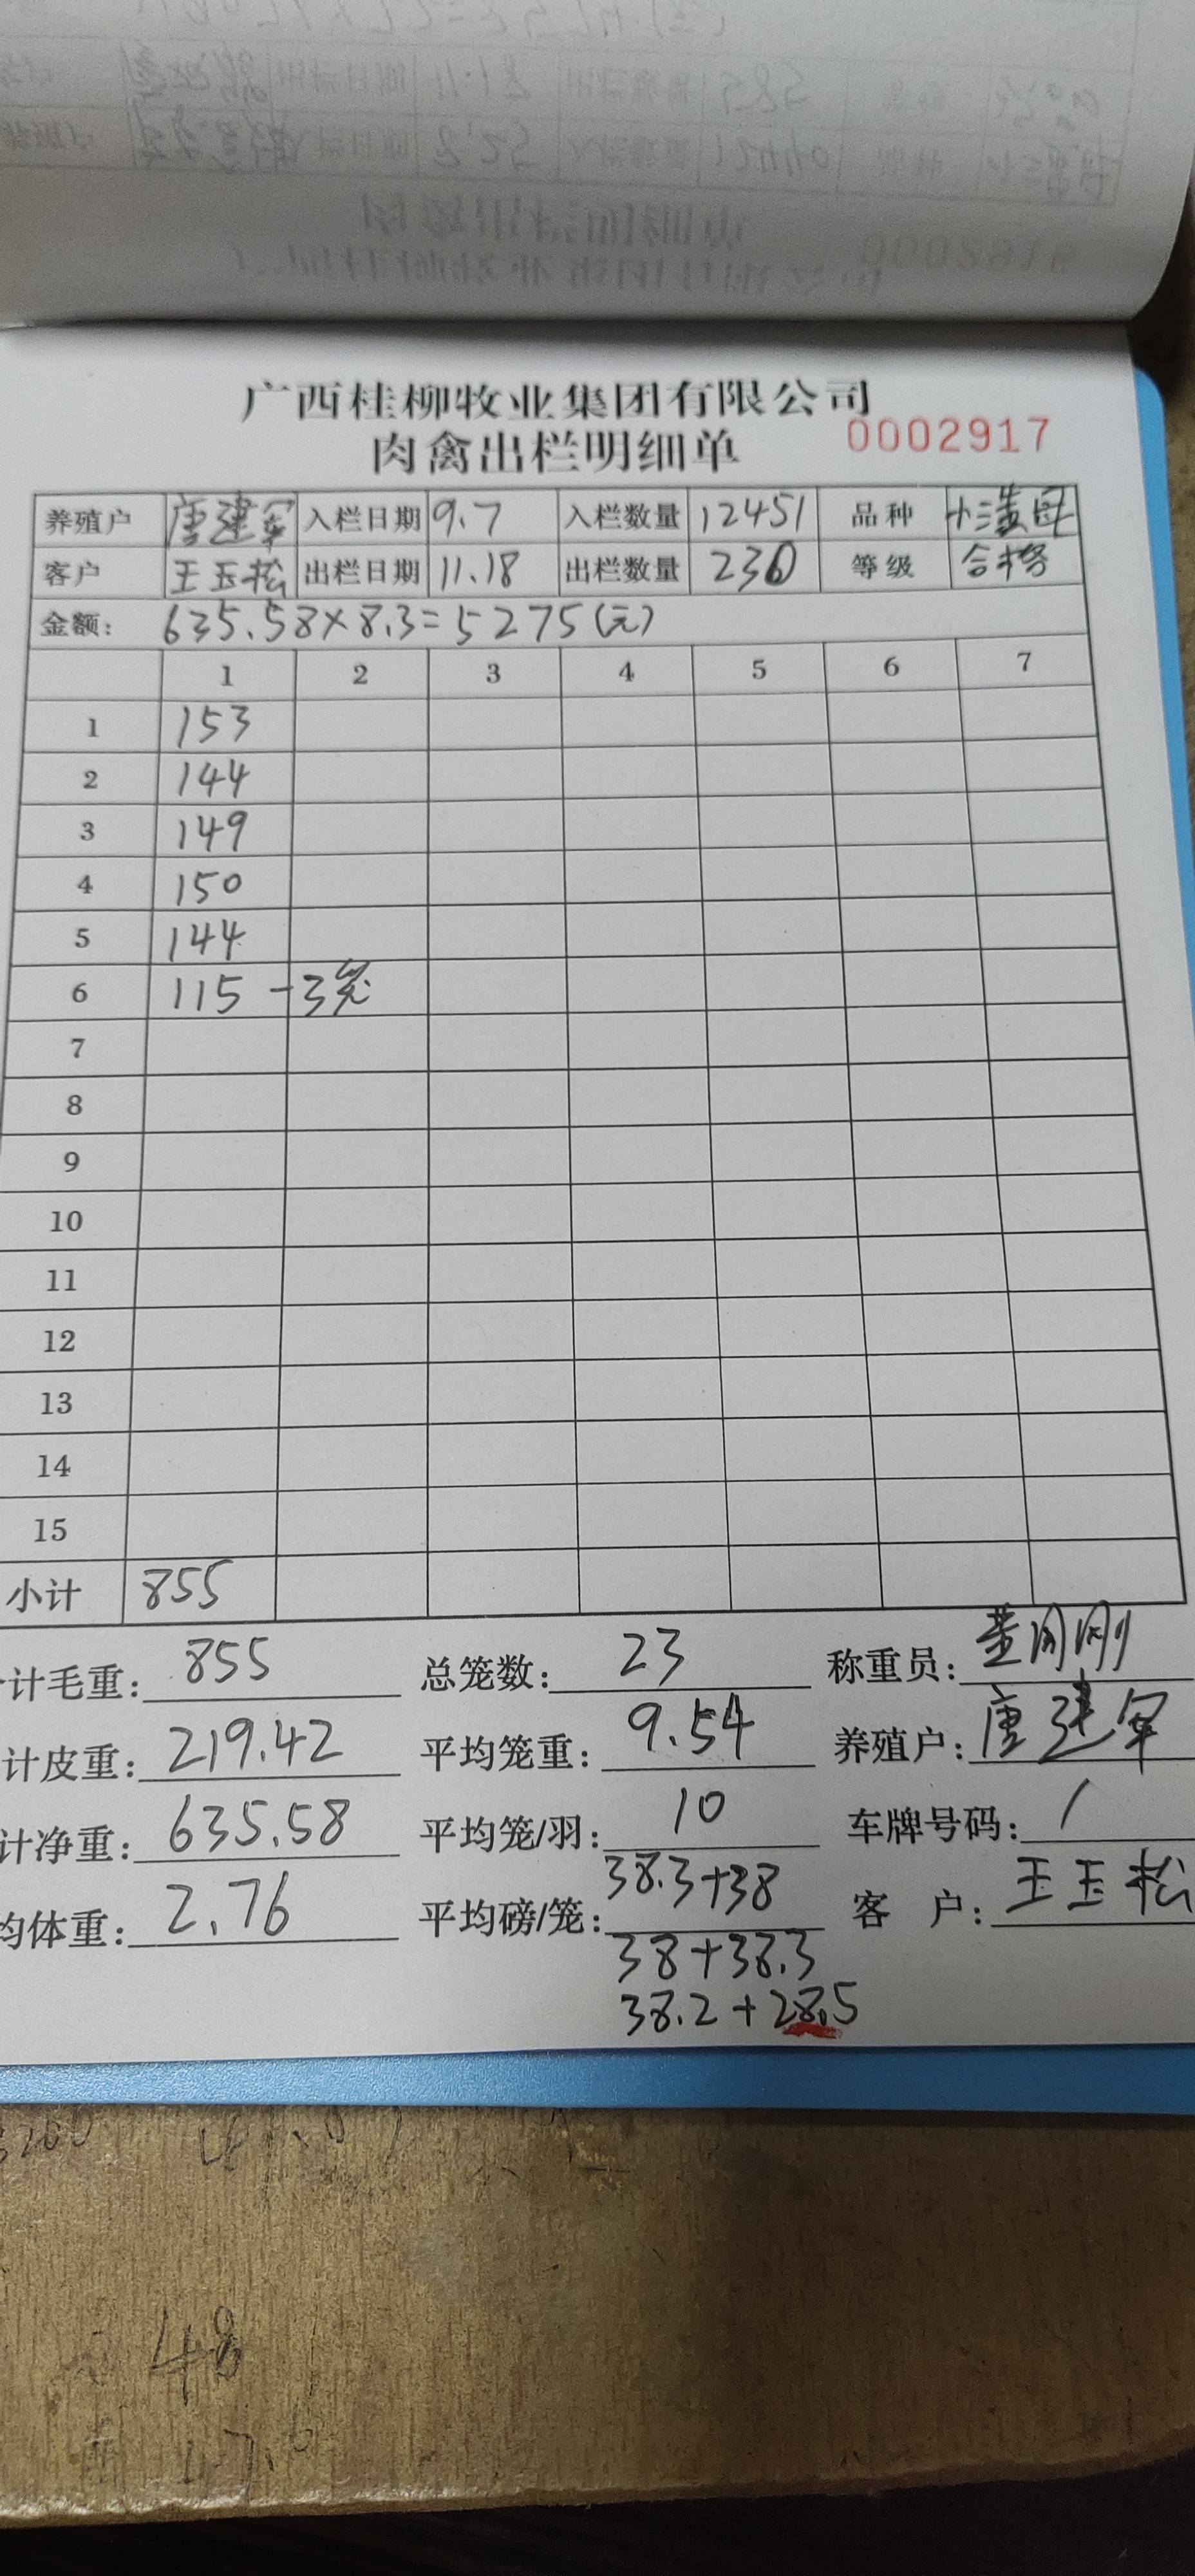 广西桂柳牧业集团有限公司
肉禽出栏明细单 0002917
养殖户 唐建军 入栏日期 9.7 入栏数量 12451 品种
客户 王玉松 出栏日期 11.18 出栏数量 230 等级 合格
金额: 635.58×8.3=5275(元)
1 2 3 4 5 6 7
1 153
2 144
3 149
4 150
5 144
6 115 -3笼
7
8
9
10
11
12
13
14
15
小计 855
计毛重: 855 总笼数: 23 称重员:
计皮重: 219.42 平均笼重: 9.54 养殖户: 唐建军
计净重: 635.58 平均笼/羽: 10 车牌号码: /
均体重: 2.76 平均磅/笼: 38.3+38 客 户: 王玉松
38+38.3
38.2+28.5
48
47.6